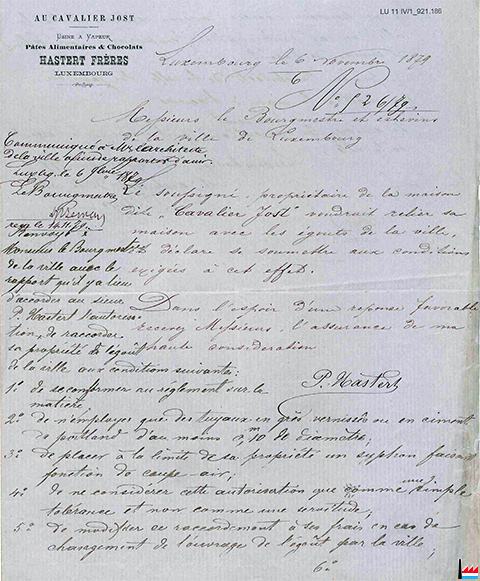 LU 11 IV/1_921.186
AU CAVALIER JOST
USINE A VAPEUR
Pâtes Alimentaires & Chocolats
HASTERT FRÈRES
LUXEMBOURG
Luxembourg le 6 Novembre 1879
6
No 526/79.
Messieurs le Bourgmestre et échevins
de la ville de Luxembourg
Communiqué à Mr l'architecte
de la ville afin de rapport et d'avis.
Luxbg. le 6 9bre 1879
Le Bourgmestre
reçu le
Renvoyé à
Monsieur le Bourgmestre
de la ville avec le
rapport qu'il y a lieu
d'accorder au sieur
P. Hastert l'autorisa-
tion de raccorder
sa propriété à l'égoût
de la ville aux conditions suivantes:
Le soussigné, propriétaire de la maison
dite "Cavalier Jost" voudrait relier sa
maison avec les égouts de la ville
et déclare se soumettre aux conditions
exigées à cet effet.
Dans l'espoir d'une réponse favorable
Messieurs, l'assurance de ma
haute considération
P. Hastert
1° de se conformer au réglement sur la
matière
2° de n'employer que des tuyaux en grès vernissé ou en ciment
de portland d'au moins de diamètre;
3° de placer à la limite de sa propriété un syphon faisant
fonction de coupe air;
4° de ne considérer cette autorisation que comme une simple
tolérance et non comme une servitude;
5° de modifier ce raccordement à ses frais en cas de
changement de l'ouvrage de l'égoût par la ville;
6°